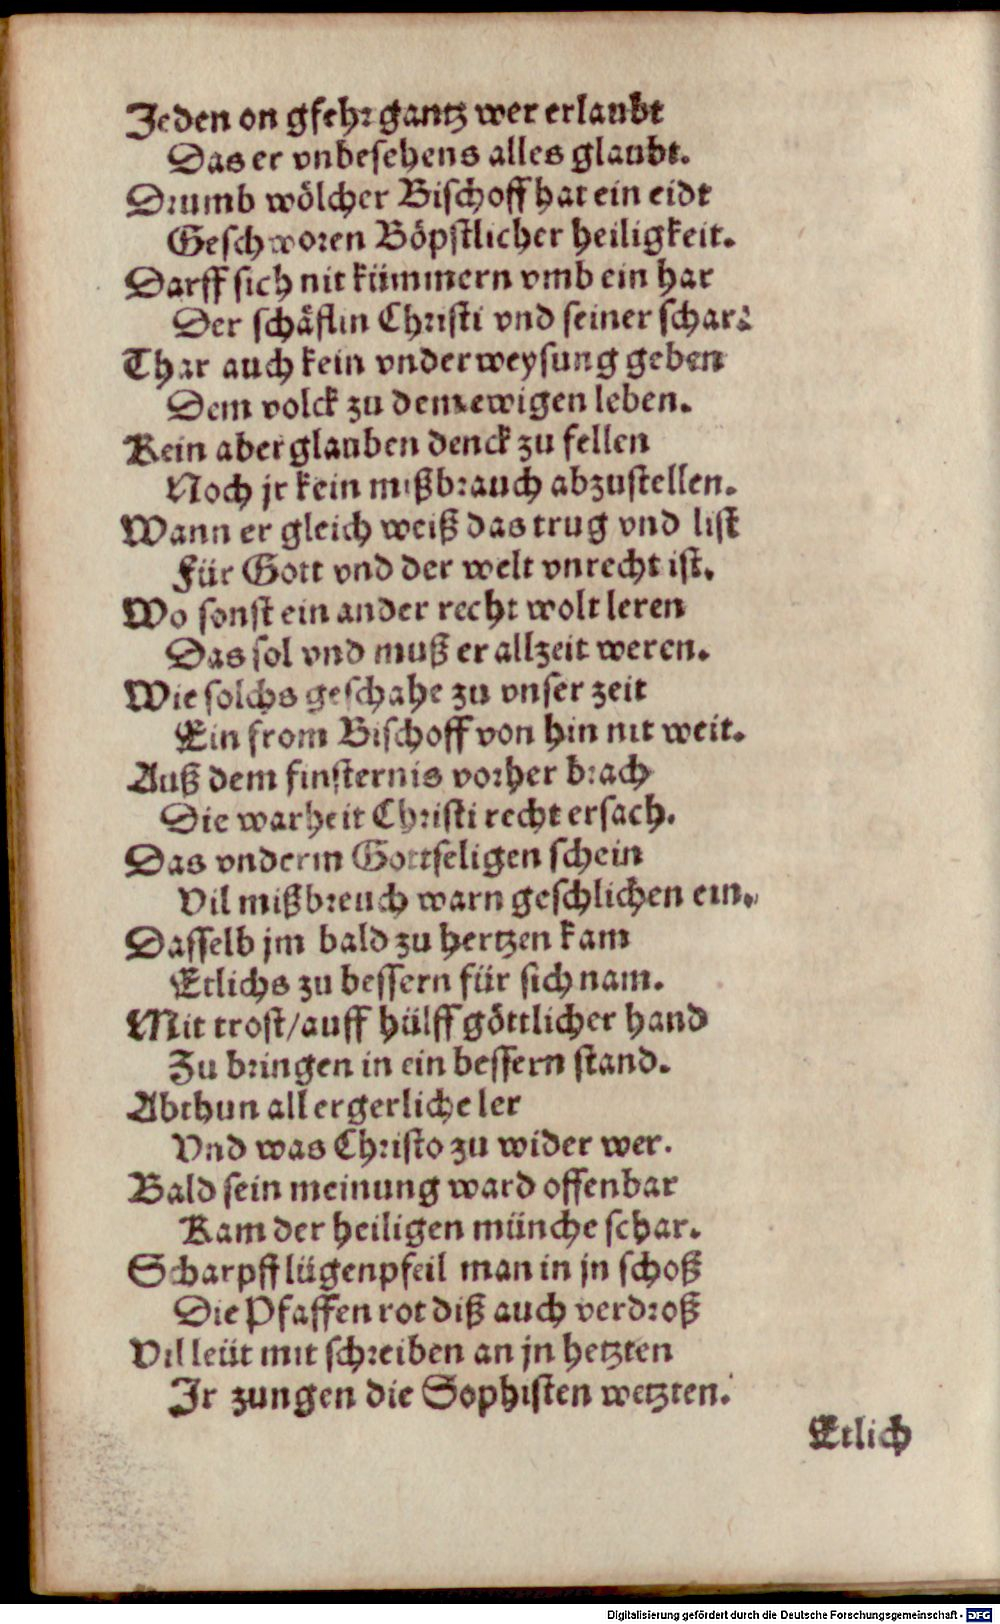 Jeden on gfehr gantz wer erlaubt
Das er vnbesehens alles glaubt.
Drumb wölcher Bischoff hat ein eidt
Geschworen Böpstlicher heiligkeit.
Darff sich nit kümmern vmb ein har
Der schäflin Christi vnd seiner schar.
Thar auch kein vnderweysung geben
Dem volck zu dem ewigen leben.
Kein aberglauben denck zu fellen
Noch jr kein mißbrauch abzustellen.
Wann er gleich weiß das trug vnd list
Für Gott vnd der welt vnrecht ist.
Wo sonst ein ander recht wolt leren
Das sol vnd muß er allzeit weren.
Wie solchs geschahe zu vnser zeit
Ein from Bischoff von hin nit weit.
Auß dem finsternis vorher brach
Die warheit Christi recht ersach.
Das vnderm Gottseligen schein
Vil mißbreuch warn geschlichen ein.
Dasselb jm bald zu hertzen kam
Etlichs zu bessern für sich nam.
Mit trost/auff hülff göttlicher hand
Zu bringen in ein bessern stand.
Abthun all ergerliche ler
Vnd was Christo zu wider wer.
Bald sein meinung ward offenbar
Kam der heiligen münche schar.
Scharpff lügenpfeil man in jn schoß
Die Pfaffen rot diß auch verdroß
Vil leüt mit schreiben an jn hetzten
Ir zungen die Sophisten wetzten.
Etlich
Digitalisierung gefördert durch die Deutsche Forschungsgemeinschaft - DFG